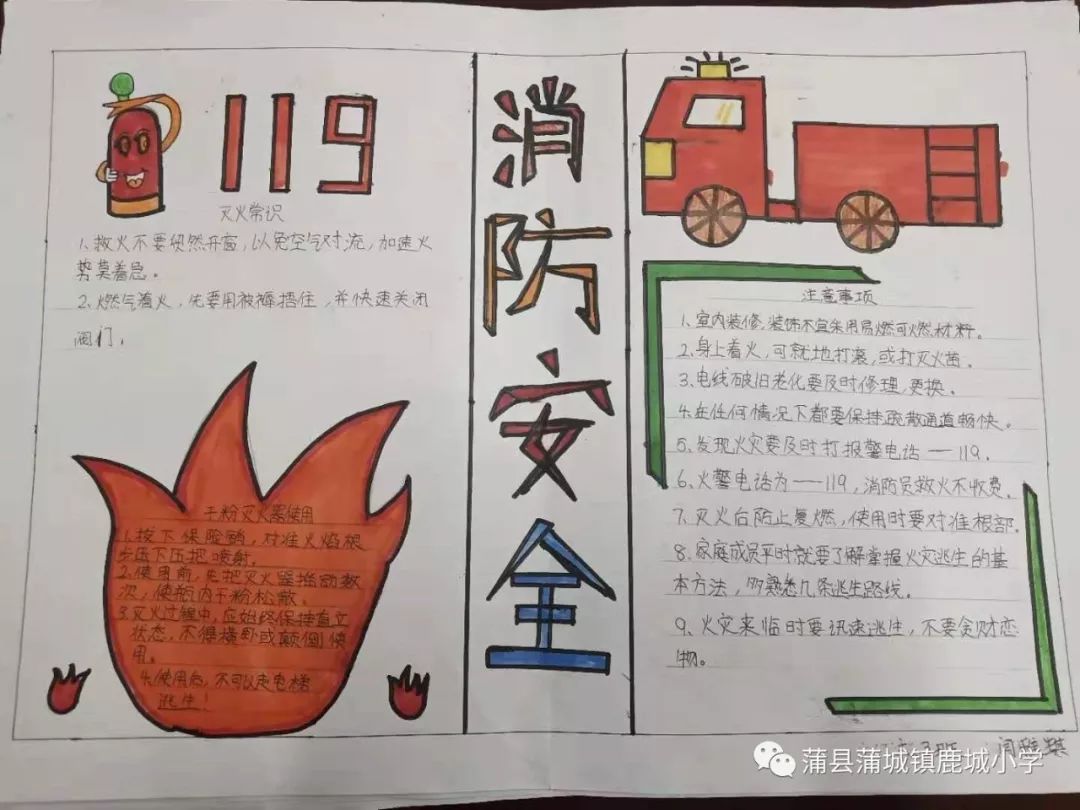 119
灭火常识
1、救火不要贸然开窗，以免空气对流，加速火
势莫着急。
2、燃气着火，先要用被褥捂住，并快速关闭
阀门，
干粉灭火器使用
1、按下保险销，对准火焰根
步压下压把喷射。
2、使用前，先把灭火器摇动数
次，使瓶内干粉松散。
3、灭火过程中，应始终保持直立
状态，不得横卧或颠倒使
用。
4、使用后，不可以走电梯
逃生！
消防安全
注意事项
1、室内装修、装饰不宜采用易燃可燃材料。
2、身上着火，可就地打滚，或打灭火苗。
3、电线破旧老化要及时修理、更换。
4、在任何情况下都要保持疏散通道畅快。
5、发现火灾要及时打报警电话——119。
6、火警电话为——119，消防员救火不收费。
7、灭火后防止复燃，使用时要对准根部。
8、家庭成员平时就要了解掌握火灾逃生的基
本方法，多熟悉几条逃生路线。
9、火灾来临时要迅速逃生，不要贪财恋
物。
蒲县蒲城镇鹿城小学